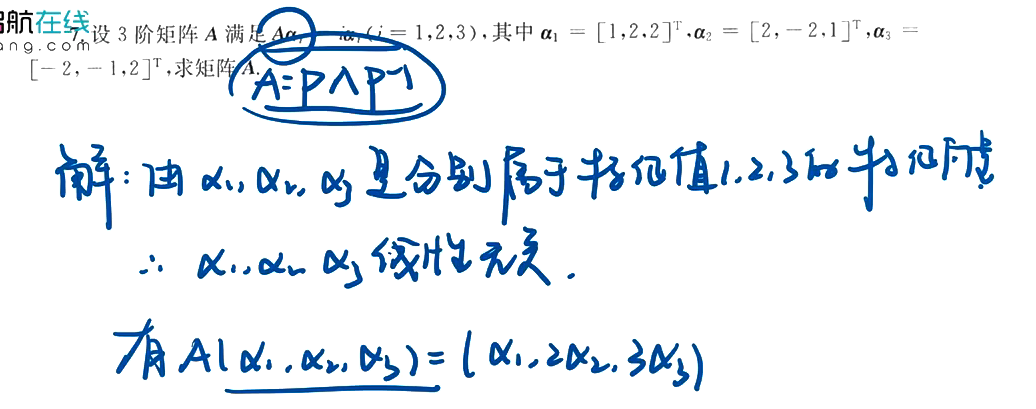 航在线
ang.com
7. 设 3 阶矩阵 A 满足 Aαᵢ = iαᵢ (i = 1,2,3),其中 α₁ = [1,2,2]ᵀ,α₂ = [2,-2,1]ᵀ,α₃ =
[-2,-1,2]ᵀ,求矩阵 A.
A=PΛP⁻¹
解:由 α₁, α₂, α₃ 是分别属于特征值1,2,3的特征向量
∴ α₁, α₂ α₃ 线性无关.
有 A(α₁, α₂, α₃) = (α₁, 2α₂, 3α₃)